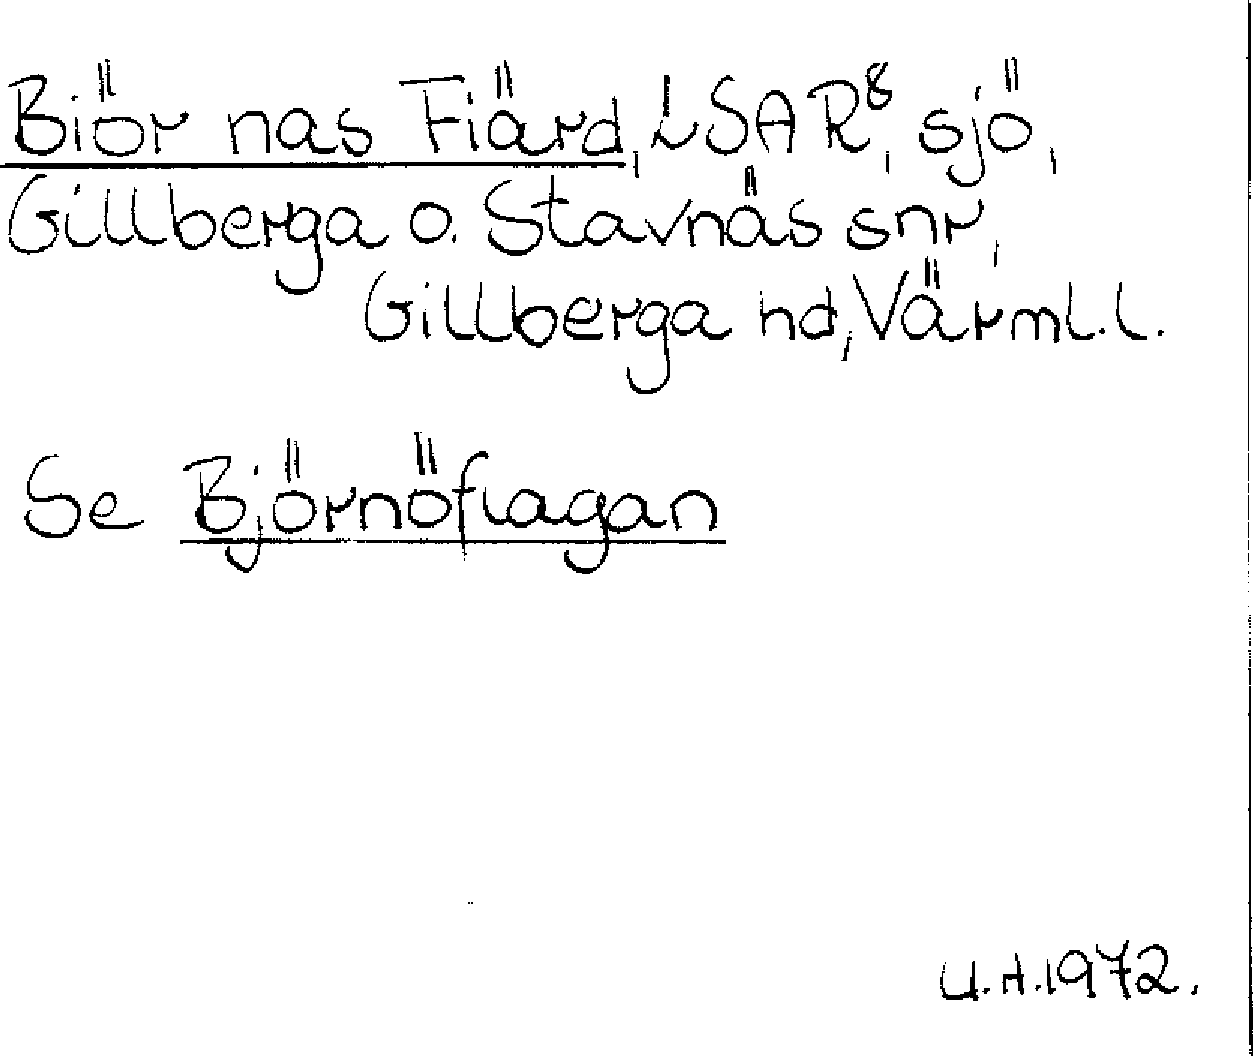 Biör nas Fiärd, LSAR⁸, sjö,
Gillberga o. Stavnäs snr,
Gillberga hd, Värml. l.
Se Björnöflagan
U.H.1972.